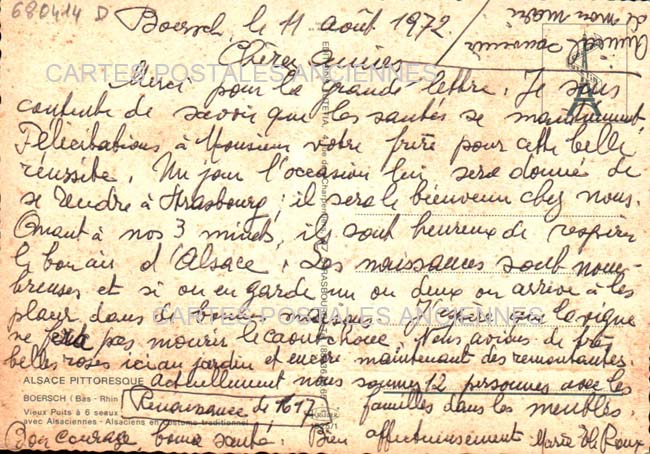 680414 D
Boersch, le 11 août 1972
Amical souvenir
de mon mari
Chères amies
CARTES POSTALES ANCIENNES
Merci pour la grande lettre. Je suis
contente de savoir que les santés se maintiennent.
Félicitations à Monsieur votre frère pour cette belle
réussite. Un jour l'occasion lui sera donnée de
se rendre à Strasbourg, il sera le bienvenu chez nous.
Quant à nos 3 minets, ils sont heureux de respirer
le bon air d'Alsace. Les naissances sont nom-
breuses et si on en garde un ou deux on arrive à les
placer dans de bonnes maisons. J'espère que la vigne
CARTES POSTALES ANCIENNES
ne fera pas mourir le caoutchouc. Nous avions de très
belles roses ici au jardin et encore maintenant des remontantes.
ALSACE PITTORESQUE
actuellement nous sommes 12 personnes avec les
BOERSCH (Bas-Rhin
familles dans les meublés.
Renaissance de 1617
Vieux Puits à 6 seaux
avec Alsaciennes - Alsaciens en costume traditionnel
Bon courage, bonne santé. Bien affectueusement Marie